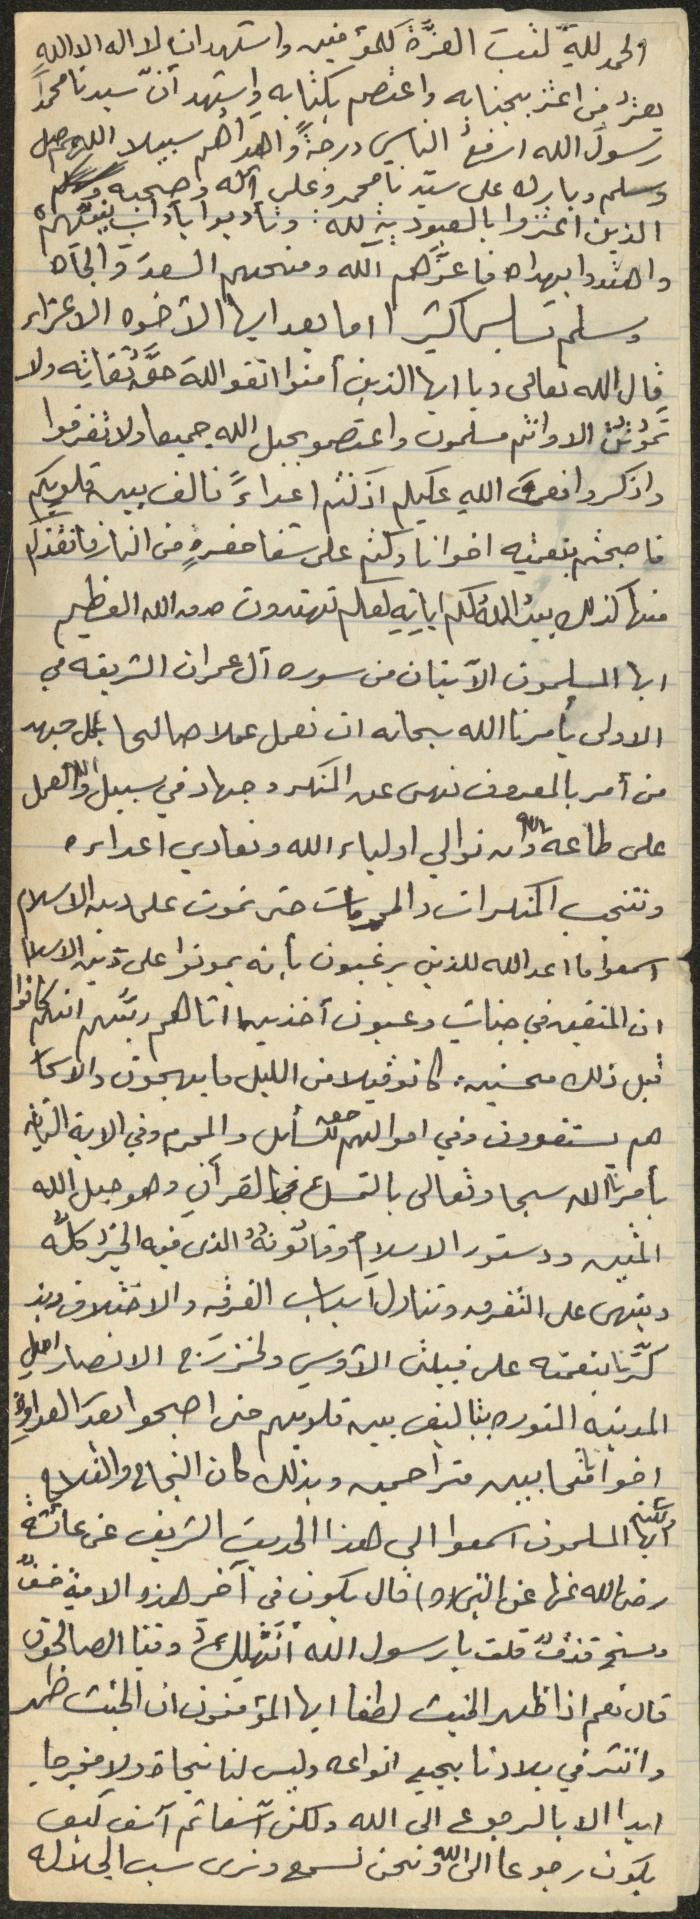 الحمد لله كتب العزَّة للمؤمنين واشهد ان لا اله الا الله
يعتز من اعتز بجنابه واعتصم بكتابه واشهد أنّ سيدنا محمداً
رسول الله ارفع الناس درجةً واهداهم سبيلا اللهم صل
وسلم وبارك على سيّدنا محمد وعلى آله وصحبه
الذين اعتزوا بالعبودية لله وتأدبوا بآداب نبيّهم
واهتدوا بهداه فأعزَّهم الله ومنحهم السعد والجاه
وسلم تسليما كثيرا اما بعد ايها الأخوه الاعزاء
قال الله تعالى ديا ايها الذين أمنوا اتقوا اللهَ حقَّ تُقاته ولا
تَموُتنَّ الا وانتم مسلمون واعتصمو بحبل الله جميعا ولا تفرقوا
واذكروا نعمة الله عليكم اذ كنتم اعداءً فالف بين قلوبكم
فاصبحتم بنعمته اخوانا وكنتم على شفا حفرةٍ من النار فانقذكم
منها كذلك يبيّن اللهُ لكم اياتِهِ لعلكم تهتدون صدق الله العظيم
ايها المسلمون الآيتان من سوره آل عمران الشريفه في
الاولى يأمرنا الله سبحانه ان نعمل عملا صالحا بكل جهد
من أمر بالمعروف نهي عن المنكر وجهاد في سبيل الله والعمل
على طاعة الله وأن نوالي اولياء الله ونعادي اعداءه
ونتجنب المنكرات والمحرمات حتى نموت على دين الاسلام
اسمعوا ما اعد الله للذين يرغبون بأنه يموتوا على دين الاسلام
ان المتقين في جنات وعيون أخذين ما اتاهم ربّهم انهم كانوا
قبل ذلك محسنين. كانو قيلا من الليل ما يهجون والاسحا
هم يستغفرون وفي اموالهم حق للسأئل والمحرم وفي الاية الثانيه
يأمرنا الله سبحا وتعالى بالتمسك بالقرآن وهو حبل الله
المتين ودستور الاسلام وقانونهُ الذى فيه الخيرُ كلُّه
وينهى على التفرق وتناول أسباب الفرقه والاختلاف ويذ
كّرُنا بنعمته على قبيلتى الأوس ولخزرَج الانصار اهل
المدينه المنوره بتاليف بين قلوبهم حتى اصبحوا بعدَ العداوةِ
اخوانا متحابيين متراحمين وبذلك كان النجاح والفلاح
أيها المسلمون اسمعوا الى هذا الحديث الشريف عن عائشة
رضى الله عنها عن النبي (ص) قال يكون في آخر هذه الامة خسفٌ
ومسخ وقذفٌ قلت يا رسول الله أنَهْلِكُ وفينا الصالحون
قال نعم اذا ظهر الخبث لطفا ايها المؤمنون ان الخبث ظهر
وانتشر في بلادنا بجميع انواعه وليس لنا نجاة ولا مخرجا
ابدا الا بالرجوع الى الله ولكن آسفا ثم آسف كيف
يكون رجوعا الى الله ونحن نسمع ونرى سب الجلاله